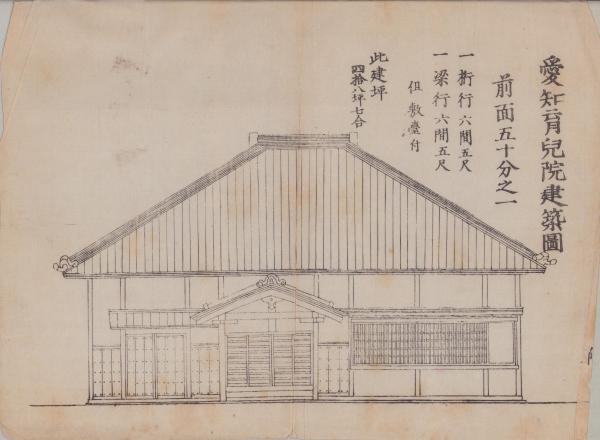 愛知育兒院建築圖
前面五十分之一
一桁行六間五尺
一梁行六間五尺
但敷臺付
此建坪
四拾八坪七合